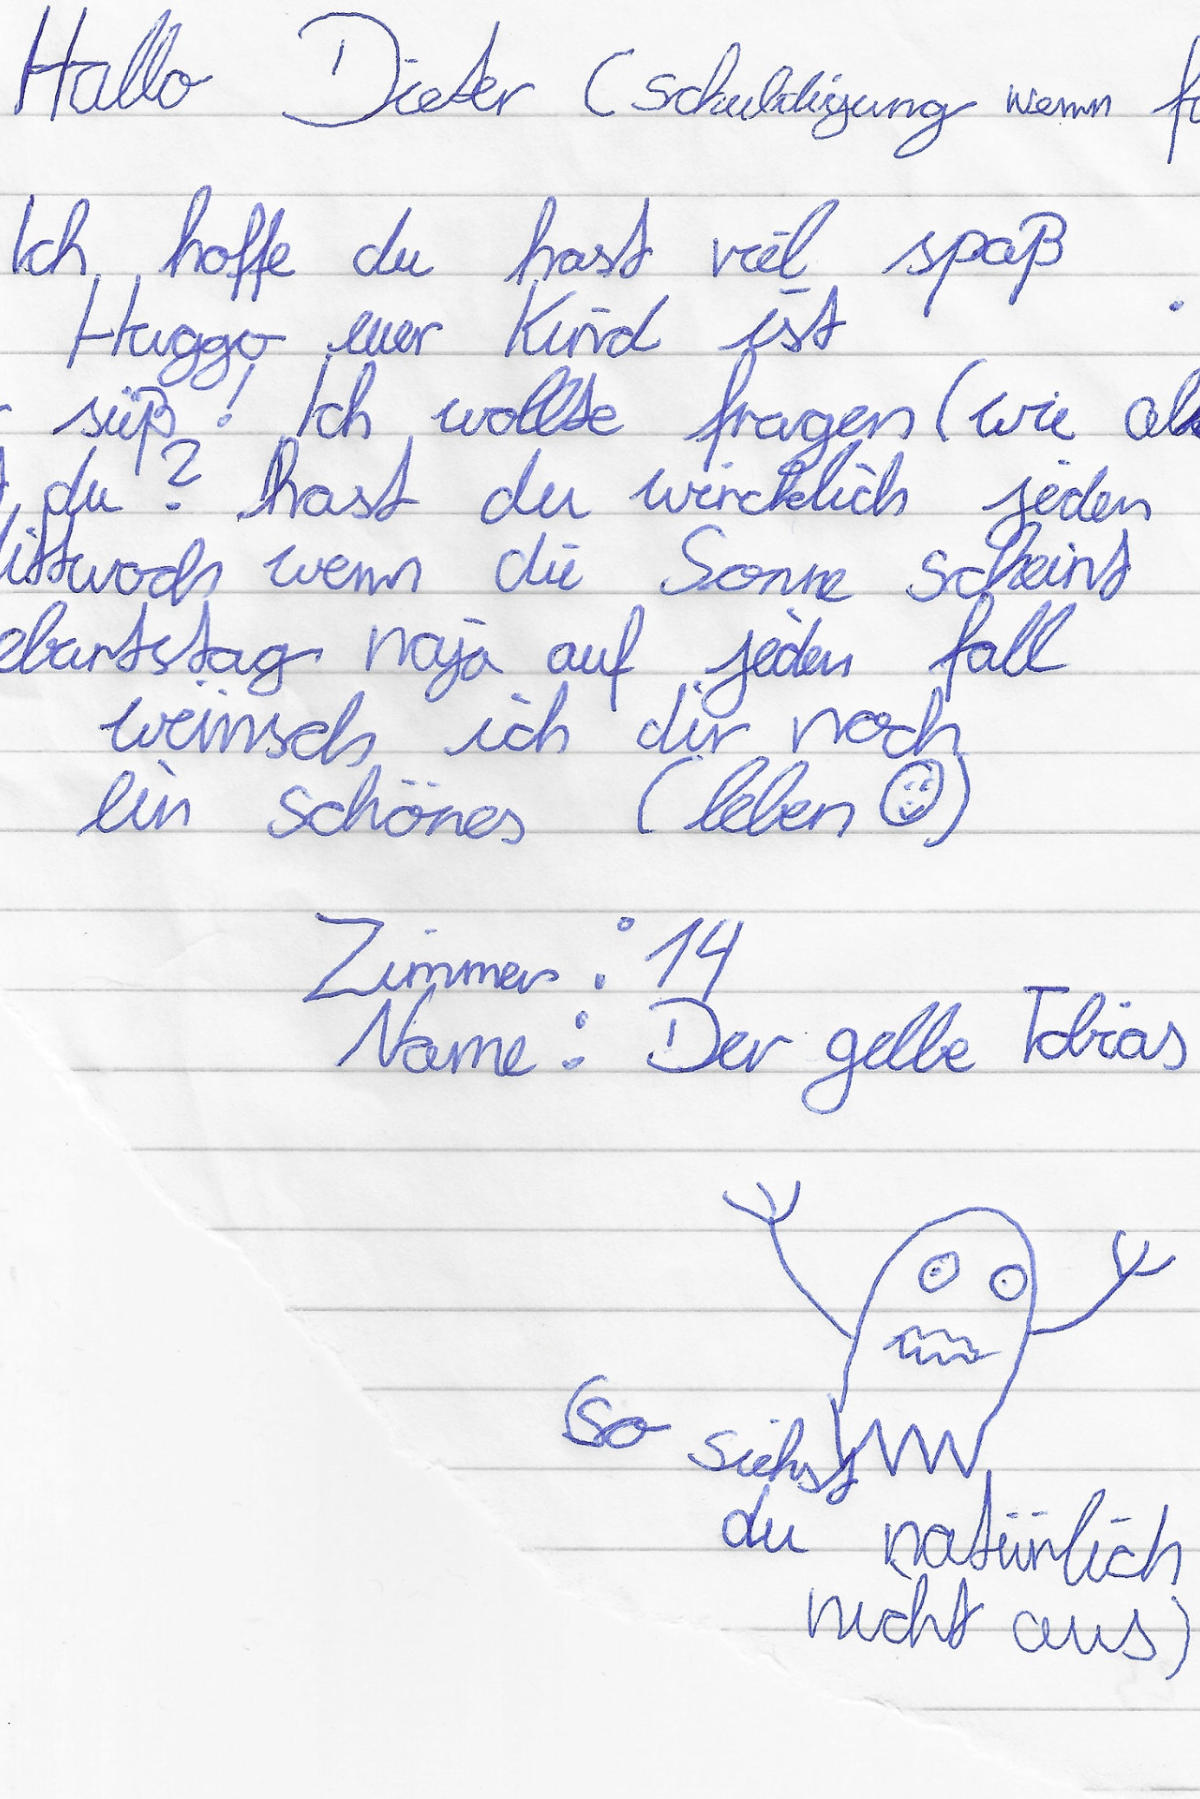 Hallo Dieter (schuldigung wenn
Ich hoffe du hast viel spaß
Huggo euer Kind ist
süß! Ich wollte fragen (wie
du? hast du wircklich jeden
ittwoch wenn die Sonne scheint
ebartstag naja auf jeden fall
weünsch ich dir noch
ein schönes (leben ☺)
Zimmer: 14
Name: Der gelbe Tobias
(so siehst
du natürlich
nicht aus)